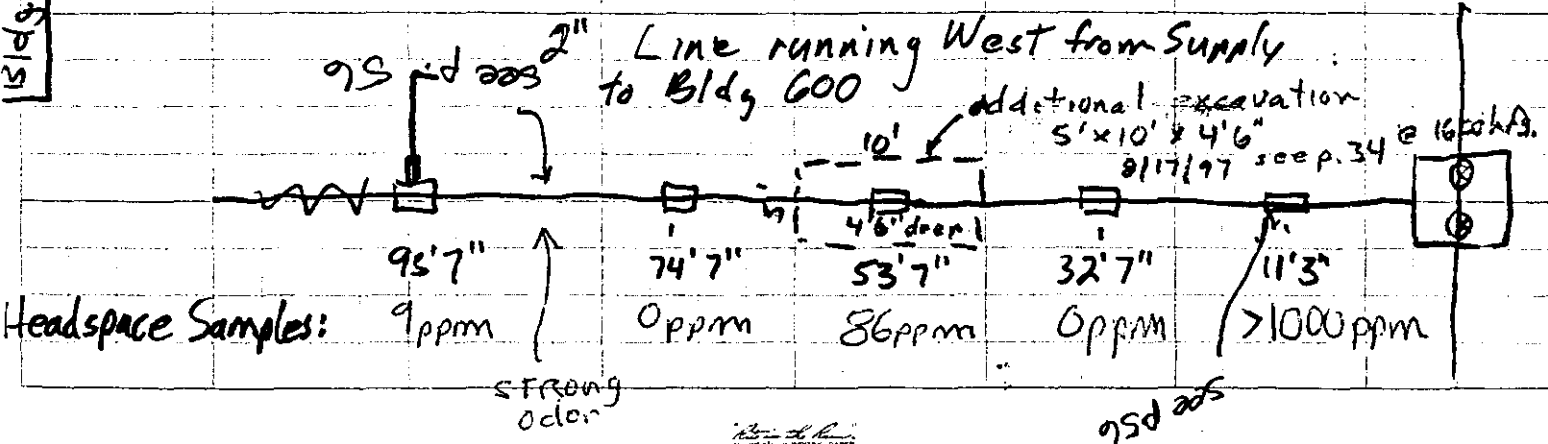 Bldg
2" Line running West from Supply
to Bldg 600
see p. 56
additional excavation
5' x 10' x 4'6"
8/17/97 see p. 34
10'
4'6" deep
95'7" 74'7" 53'7" 32'7" 11'3"
Headspace Samples: 9ppm 0ppm 86ppm 0ppm >1000ppm
STRONG
odor
see p56